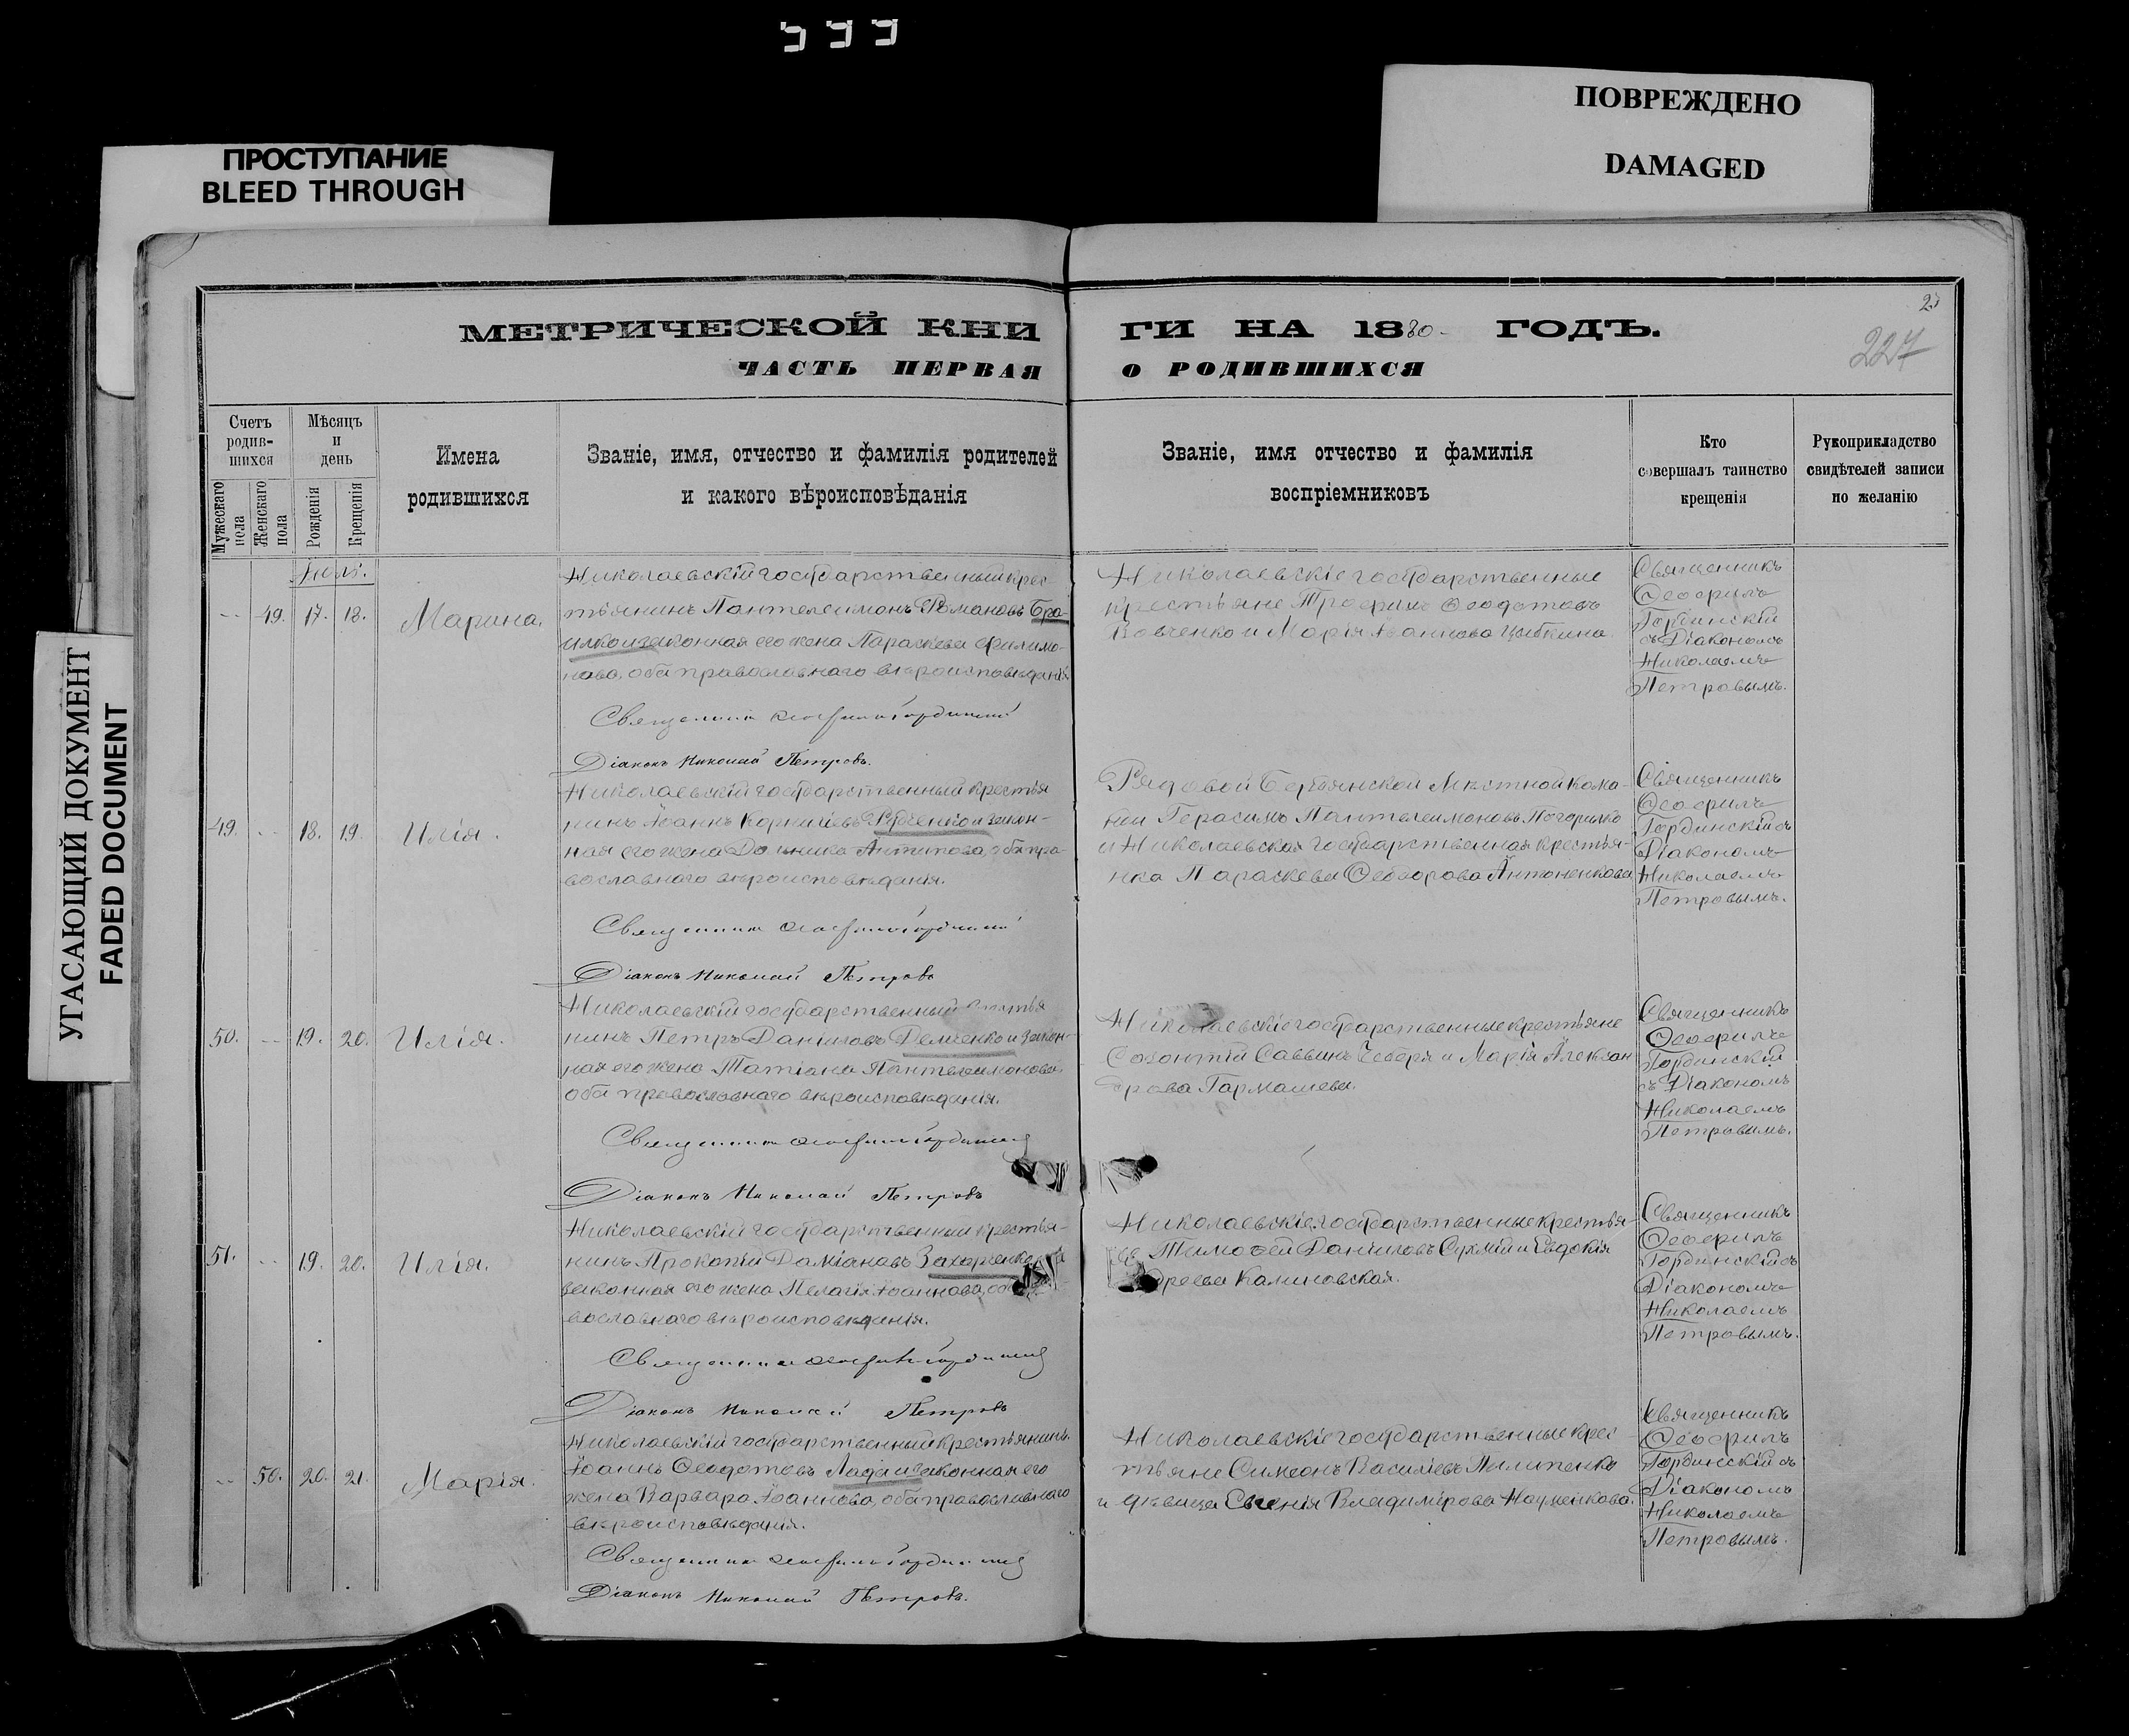 ПРОСТУПАНИЕ
BLEED THROUGH
ПОВРЕЖДЕНО
DAMAGED
УГАСАЮЩИЙ ДОКУМЕНТ
FADED DOCUMENT
227
МЕТРИЧЕСКОЙ КНИГИ НА 1880 ГОДЪ.
ЧАСТЬ ПЕРВАЯ О РОДИВШИХСЯ
Счетъ родив-шихся
Мужескаго пола
Женскаго пола
Мѣсяцъ и день
Рожденія
Крещенія
Имена родившихся
Званіе, имя, отчество и фамилія родителей
и какого вѣроисповѣданія
Званіе, имя отчество и фамилія
воспріемниковъ
Кто
совершалъ таинство
крещенія
Рукоприкладство
свидѣтелей записи
по желанію
49. 17. 18. Марина.
Николаевскій государственный крес-
тьянинъ Пантелеимонъ Романовъ
законная его жена Параскева Филимо-
нова, оба православнаго вѣроисповѣданія.
Священникъ Ѳеофилъ Гординскій
Діаконъ Николай Петровъ.
Николаевскіе государственные
крестьяне Трофимъ Ѳеодотовъ
Вовченко и Марія Іоаннова
Священникъ
Ѳеофилъ
Гординскій
съ Діакономъ
Николаемъ
Петровымъ.
49. 18. 19. Илія.
Николаевскій государственный крестья
нинъ Іоаннъ Корниліевъ Рубленко и закон-
ная его жена Домника Антипова, оба пра-
вославнаго вѣроисповѣданія.
Священникъ Ѳеофилъ Гординскій
Діаконъ Николай Петровъ
Рядовой Бердянской Мѣстной кома-
нды Герасимъ Пантелеимоновъ Погорилко
и Николаевская государственная крестья-
нка Параскева Ѳеодорова Антоненкова
Священникъ
Ѳеофилъ
Гординскій съ
Діакономъ
Николаемъ
Петровымъ.
50. 19. 20. Илія.
Николаевскій государственный крестья
нинъ Петръ Даніиловъ Демченко и закон-
ная его жена Татіана Пантелеимонова,
оба православнаго вѣроисповѣданія.
Священникъ Ѳеофилъ Гординскій
Діаконъ Николай Петровъ
Николаевскіе государственные крестьяне
Созонтій Саввинъ Чебера и Марія Алексан
дрова Гармашева.
Священникъ
Ѳеофилъ
Гординскій
съ Діакономъ
Николаемъ
Петровымъ.
51. 19. 20. Илія.
Николаевскій государственный крестья-
нинъ Прокопій Даміановъ Захарченко
законная его жена Пелагія Іоаннова,
вославнаго вѣроисповѣданія.
Священникъ Ѳеофилъ Гординскій
Діаконъ Николай Петровъ
Николаевскіе государственные крестья-
не Тимоѳей Даніиловъ Сухмій и Евдокія
дреева Калиновская.
Священникъ
Ѳеофилъ
Гординскій съ
Діакономъ
Николаемъ
Петровымъ.
50. 20. 21. Марія.
Николаевскій государственный крестьянинъ
Іоаннъ Ѳеодотовъ Лада и законная его
жена Варвара Іоаннова, оба православнаго
вѣроисповѣданія.
Священникъ Ѳеофилъ Гординскій
Діаконъ Николай Петровъ.
Николаевскіе государственные крес-
тьяне Симеонъ Василіевъ Пилипенко
и дѣвица Евгенія Владимірова Науменкова.
Священникъ
Ѳеофилъ
Гординскій съ
Діакономъ
Николаемъ
Петровымъ.